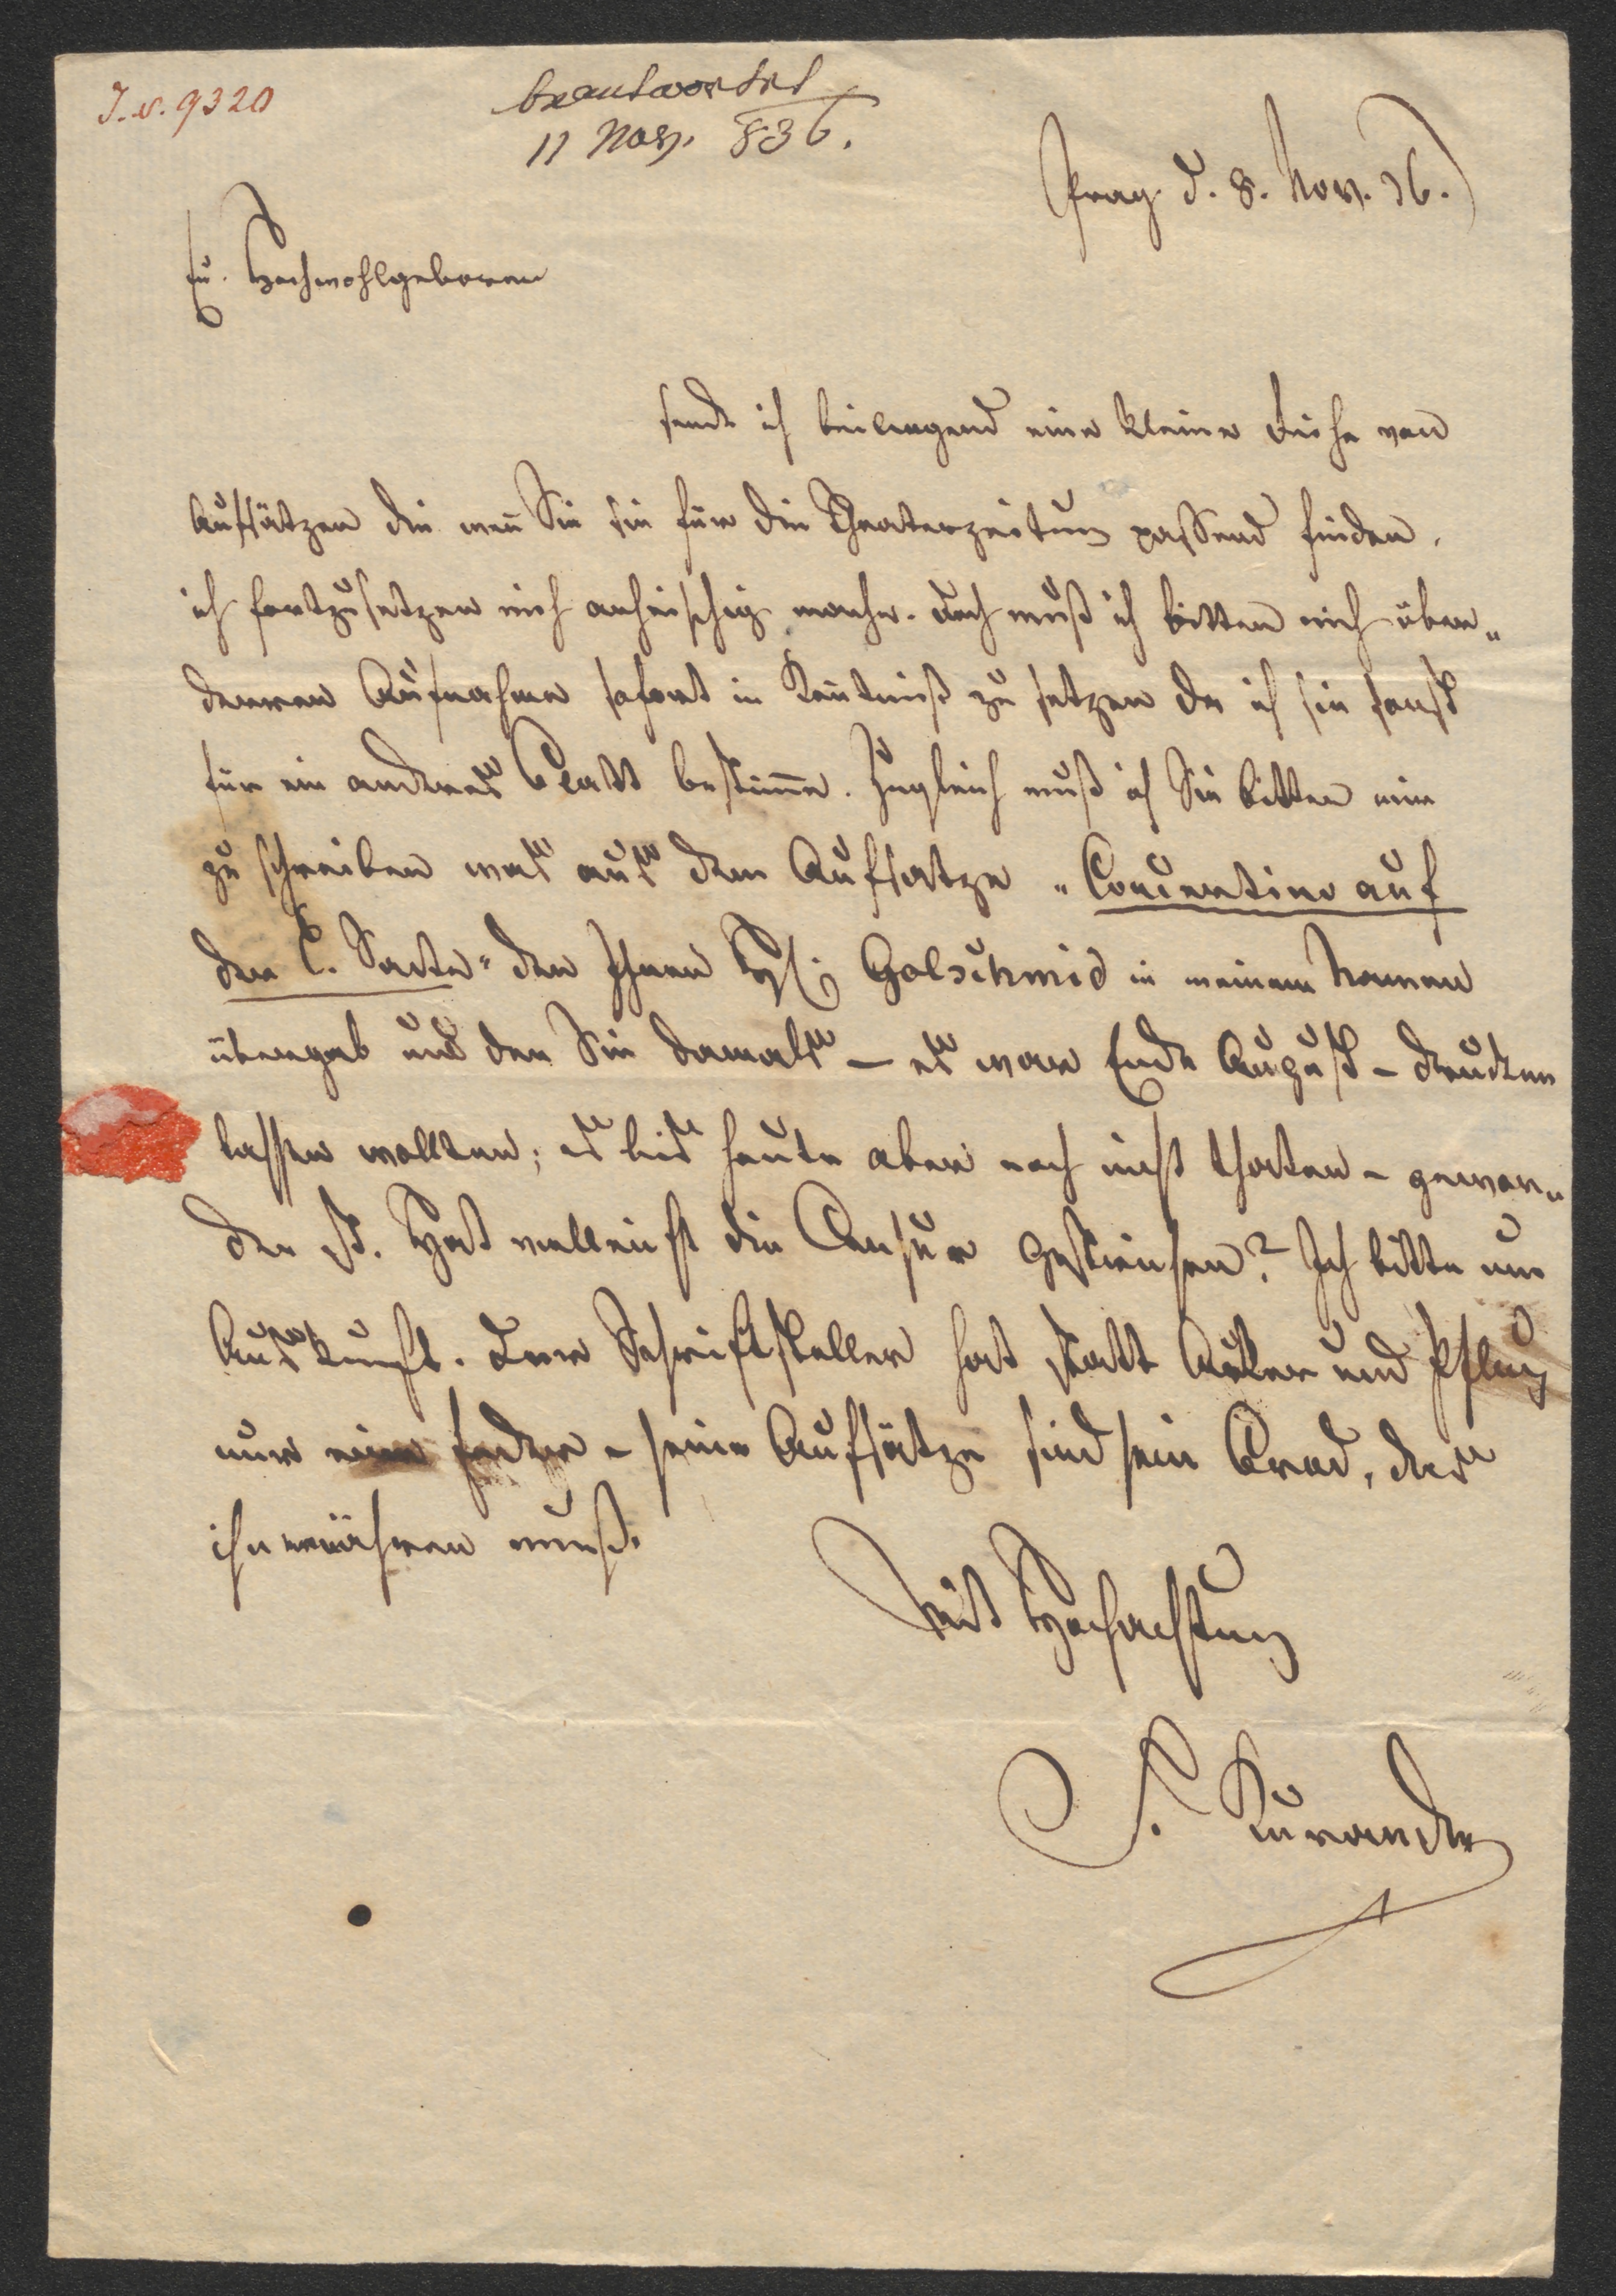 J. N. 9320
beantwortet
11 Nov. 836.
Prag d. 8. Nov. 36.
Eu. Hochwohlgeboren
sende ich beiliegend eine kleine Reihe von
Aufsätzen die wen̄ Sie sie für die Theaterzeitung passend finden,
ich fortzusetzen mich anheischig mache. Doch muß ich bitten mich über
deren Aufnahme sofort in Ken̄tniß zu setzen da ich sie sonst
für ein anderes Blatt bestim̄e. Zugleich muß ich Sie bitten mir
zu schreiben was aus dem Aufsatze „Concertino auf
der C. Saite" den Ihnen H. Golschmid in meinem Namen
übergab und den Sie damals – es war Ende August – drucken
lassen wollten; es bis heute aber noch nicht thaten – gewor„
den ist. Hat vielleicht die Censur gestrichen? Ich bitte um
Auskunft. Der Schriftsteller hat statt Acker und Pflug
nur eine Feder – seine Aufsätze sind sein Brod, das
ihn ernähren muß.
Mit Hochachtung
I. Kuranda